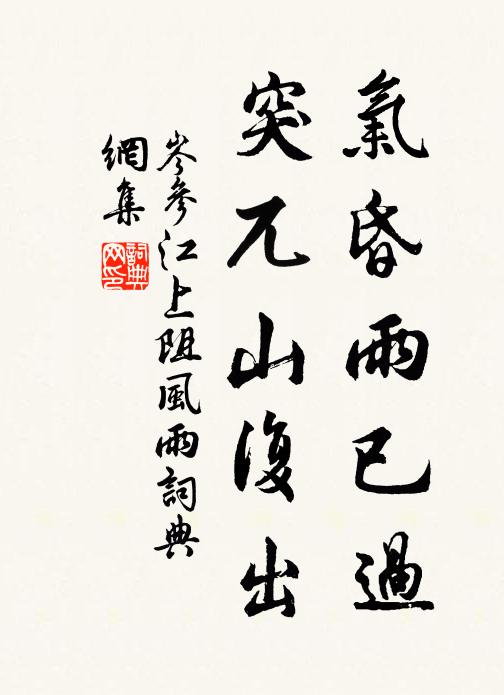 氣昏雨已過
突兀山復出
岑參江上阻風雨詞典
網集
詞典网印